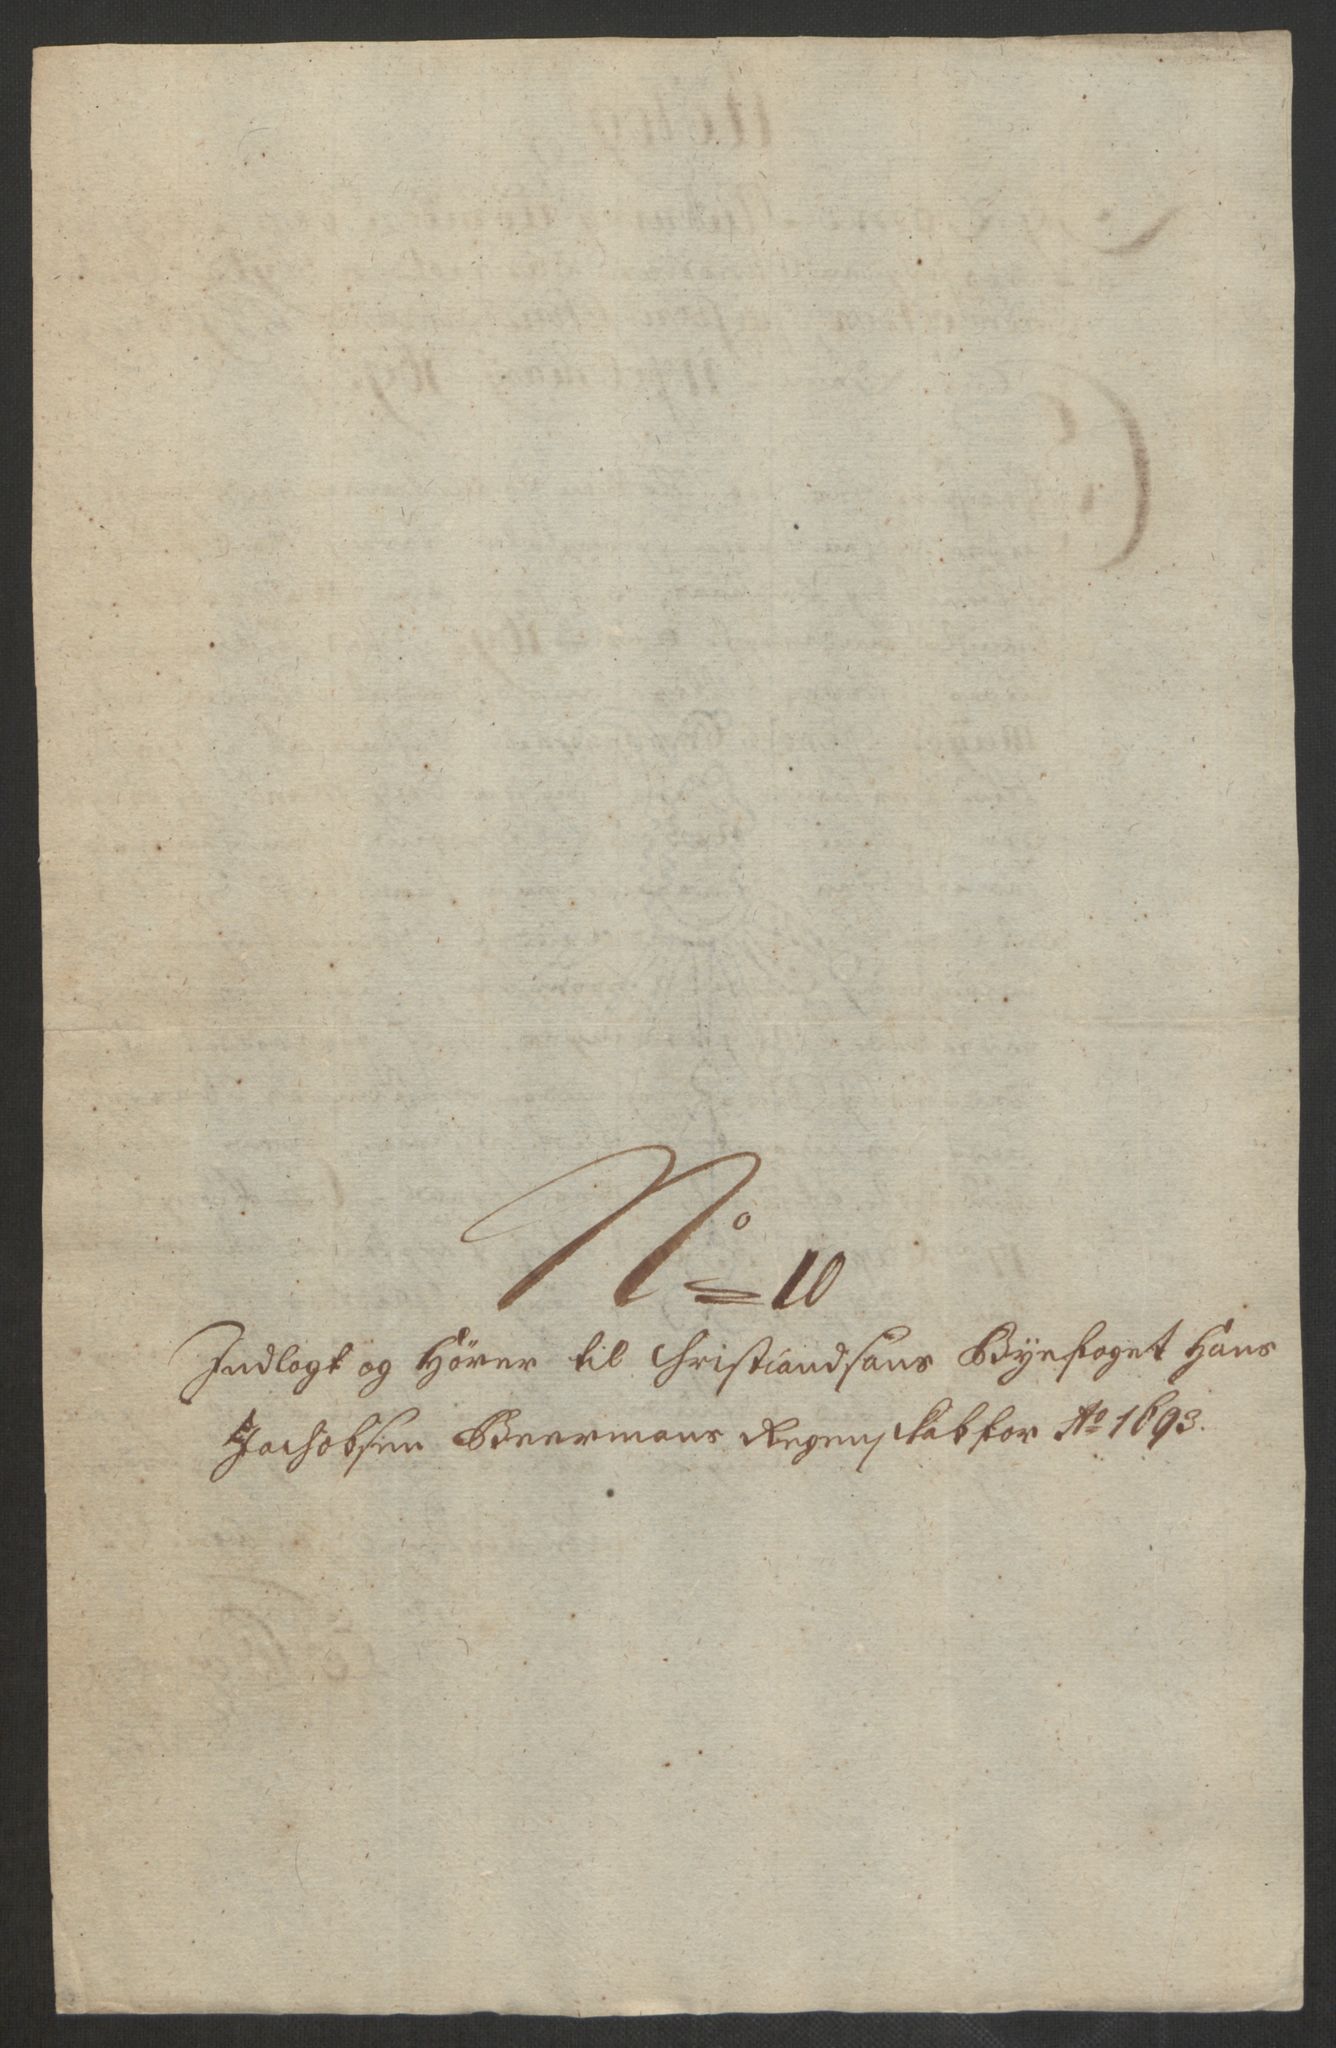 No 10
Indlagt og Hörer til Christiandsans Byefoget Hans
Jachobsen Beermans Regenskab for Ao 1693.